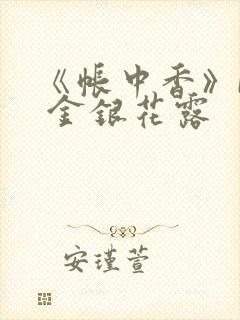 《帐中香》
金银花露
安瑾萱